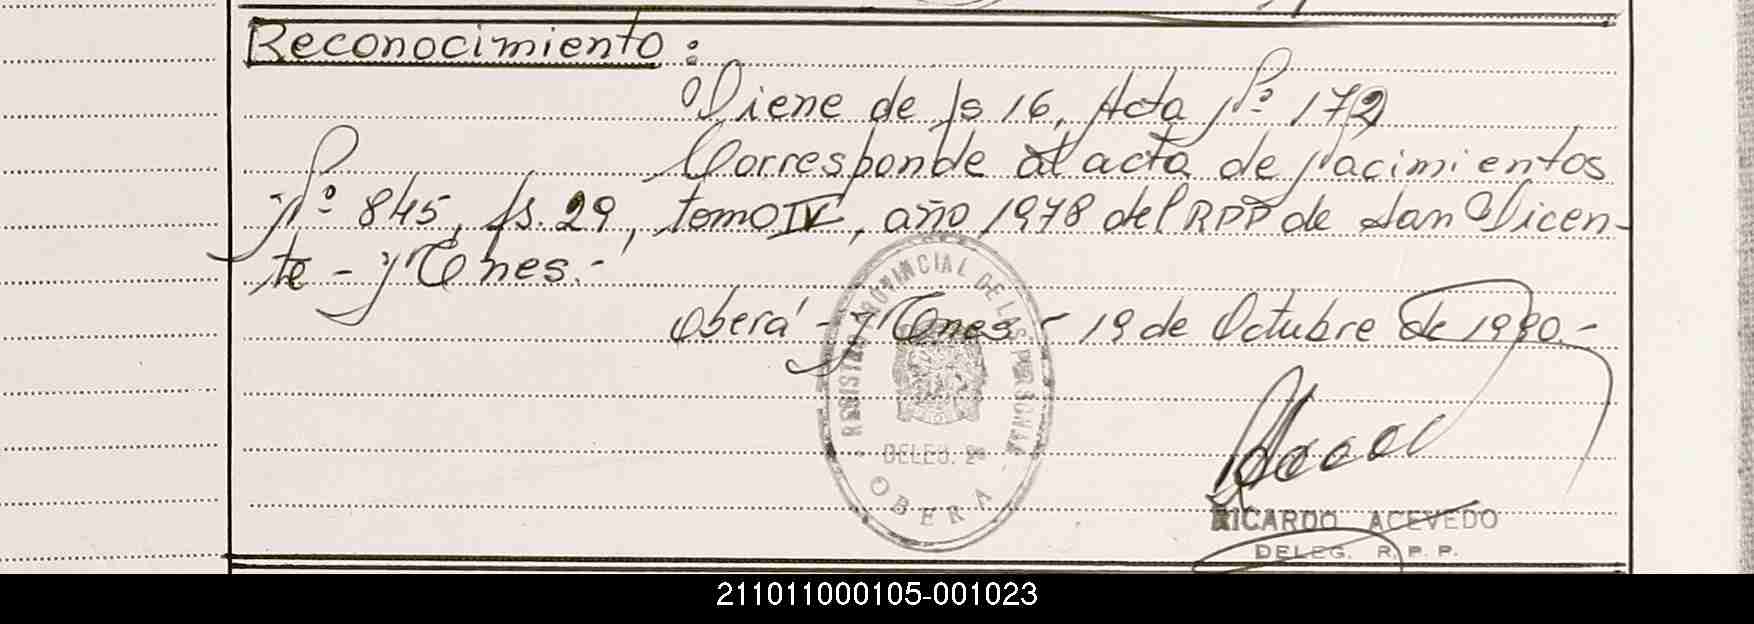 Reconocimiento:
Viene de fs 16, Acta Nº 172
Corresponde al acta de Nacimientos
Nº 845, fs. 29, tomo IV, año 1978 del RPP de San Vicen-
te - Mnes.-
Oberá - Mnes - 19 de Octubre de 1990.-
REGISTRO PROVINCIAL DE LAS PERSONAS
DELEG. 2ª
OBERA
RICARDO ACEVEDO
DELEG. R. P. P.
211011000105-001023